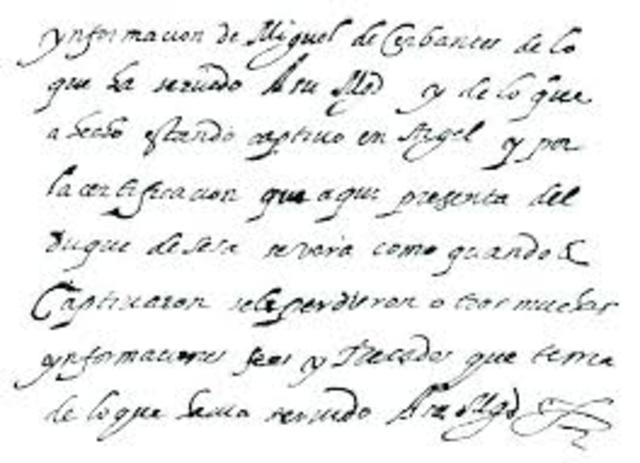 ynformacion de Miguel de Cerbantes de lo
que ha seruido A su Mgd y de lo que
a hecho estando captiuo en Argel y por
la certificacion que aqui presenta del
duque de sesa se vera como quando le
Captiuaron se le perdieron otras muchas
ynformaciones fees y Recados que tenia
de lo que hauia seruido A su Mgd